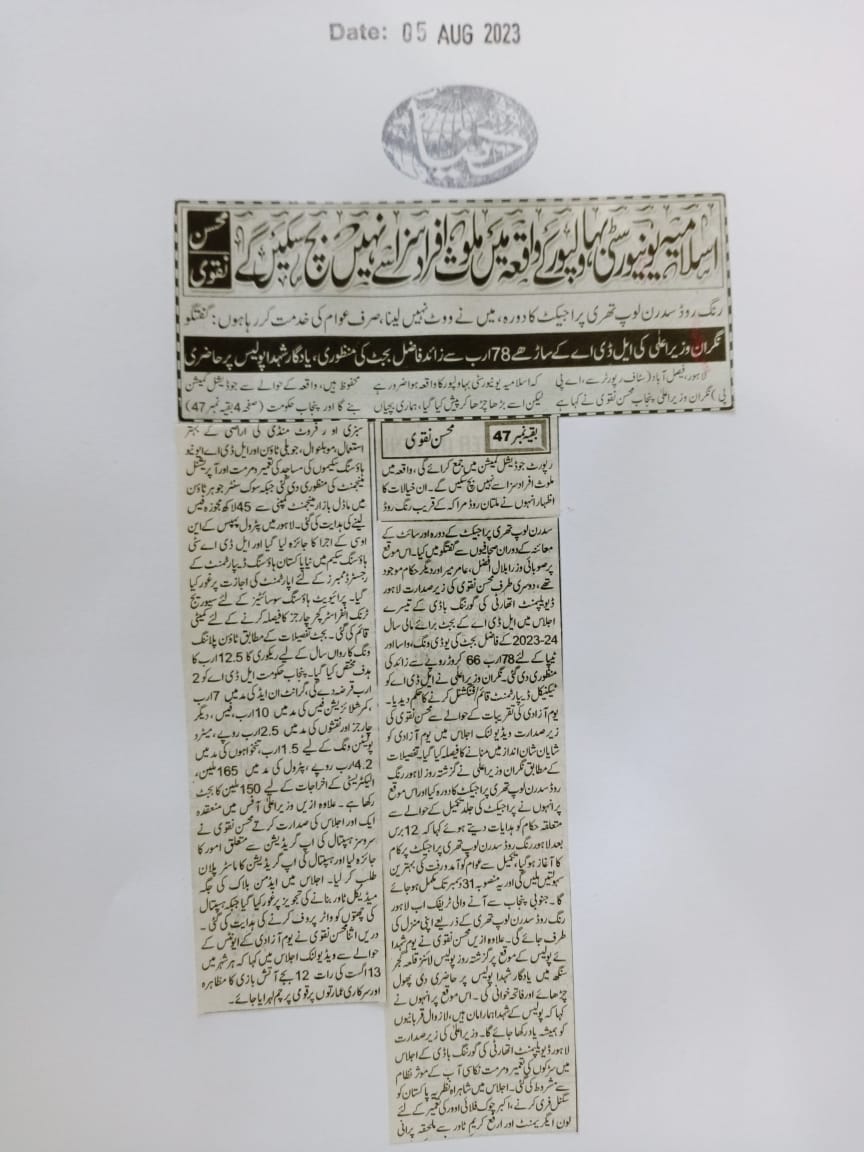 Date: 05 AUG 2023
دنیا
اسلامیہ یونیورسٹی بہاولپور کے واقعہ میں ملوث افراد سزا سے نہیں بچ سکیں گے
محسن
نقوی
رنگ روڈ سدرن لوپ تھری پراجیکٹ کا دورہ، میں نے ووٹ نہیں لینا، صرف عوام کی خدمت کر رہا ہوں: گفتگو
نگران وزیراعلیٰ کی ایل ڈی اے کے ساڑھے 78 ارب سے زائد فاضل بجٹ کی منظوری، یادگار شہدا پولیس پر حاضری
لاہور، فیصل آباد (سٹاف رپورٹر سے، اے پی
پی) نگران وزیراعلیٰ پنجاب محسن نقوی نے کہا ہے
کہ اسلامیہ یونیورسٹی بہاولپور کا واقعہ ہوا ضرور ہے
لیکن اسے بڑھا چڑھا کر پیش کیا گیا، ہماری بچیاں
محفوظ ہیں، واقعہ کے حوالے سے جوڈیشل کمیشن
بنے گا اور پنجاب حکومت (صفحہ 4 بقیہ نمبر 47)
بقیہ نمبر 47
محسن نقوی
رپورٹ جوڈیشل کمیشن میں جمع کرائے گی، واقعہ میں
ملوث افراد سزا سے نہیں بچ سکیں گے۔ ان خیالات کا
اظہار انہوں نے ملتان روڈ مراکہ کے قریب رنگ روڈ
سدرن لوپ تھری پراجیکٹ کے دورہ اور سائٹ کے
معائنہ کے دوران صحافیوں سے گفتگو میں کیا۔ اس موقع
پر صوبائی وزرا بلال افضل، عامر میر اور دیگر حکام موجود
تھے، دوسری طرف محسن نقوی کی زیر صدارت لاہور
ڈیویلپمنٹ اتھارٹی کی گورننگ باڈی کے تیسرے
اجلاس میں ایل ڈی اے کے بجٹ برائے مالی سال
2023-24 کے فاضل بجٹ کی یو ڈی ونگ، واسا اور
ٹیپا کے لئے 78 ارب 66 کروڑ روپے سے زائد کی
منظوری دی گئی۔ نگران وزیراعلیٰ نے ایل ڈی اے کو
ٹیکنیکل ڈیپارٹمنٹ قائم/فنکشنل کرنے کا حکم دیدیا۔
یوم آزادی کی تقریبات کے حوالے سے محسن نقوی کی
زیر صدارت ویڈیو لنک اجلاس میں یوم آزادی کو
شایان شان انداز میں منانے کا فیصلہ کیا گیا۔ تفصیلات
کے مطابق نگران وزیراعلیٰ نے گزشتہ روز لاہور رنگ
روڈ سدرن لوپ تھری پراجیکٹ کا دورہ کیا اور اس موقع
پر انہوں نے پراجیکٹ کی جلد تکمیل کے حوالے سے
متعلقہ حکام کو ہدایات دیتے ہوئے کہا کہ 12 برس
بعد لاہور رنگ روڈ سدرن لوپ تھری پراجیکٹ پر کام
کا آغاز ہو گیا، تکمیل سے عوام کو آمدورفت کی بہترین
سہولتیں ملیں گی اور یہ منصوبہ 31 دسمبر تک مکمل ہو جائے
گا۔ جنوبی پنجاب سے آنے والی ٹریفک اب لاہور
رنگ روڈ سدرن لوپ تھری کے ذریعے اپنی منزل کی
طرف جائے گی۔ علاوہ ازیں محسن نقوی نے یوم شہدا
ئے پولیس کے موقع پر گزشتہ روز پولیس لائنز قلعہ گجر
سنگھ میں یادگار شہدا پولیس پر حاضری دی پھول
چڑھائے اور فاتحہ خوانی کی۔ اس موقع پر انہوں نے
کہا کہ پولیس کے شہدا ہمارا مان ہیں، لازوال قربانیوں
کو ہمیشہ یاد رکھا جائے گا۔ وزیراعلیٰ کی زیر صدارت
لاہور ڈیویلپمنٹ اتھارٹی کی گورننگ باڈی کے اجلاس
میں سڑکوں کی تعمیر و مرمت نکاسی آب کے موثر نظام
سے مشروط کی گئی۔ اجلاس میں شاہراہ نظریہ پاکستان کو
سگنل فری کرنے، اکبر چوک فلائی اوور کی تعمیر کے لئے
لون ایگریمنٹ اور ارفع کریم ٹاور سے ملحقہ پرانی
سبزی اور فروٹ منڈی کی اراضی کے بہتر
استعمال، موہلنوال، جوبلی ٹاؤن اور ایل ڈی اے ایونیو
ہاؤسنگ سکیموں کی مساجد کی تعمیر و مرمت اور آپریشنل
مینجمنٹ کی منظوری دی گئی جبکہ سوک سنٹر جوہر ٹاؤن
میں ماڈل بازار مینجمنٹ کمپنی سے 45 لاکھ مجوزہ فیس
لینے کی ہدایت کی گئی۔ لاہور میں پٹرول پمپس کے این
او سی کے اجرا کا جائزہ لیا گیا اور ایل ڈی اے سٹی
ہاؤسنگ سکیم میں نیا پاکستان ہاؤسنگ ڈیپارٹمنٹ کے
رجسٹرڈ ممبرز کے لئے اپارٹمنٹ کی اجازت پر غور کیا
گیا۔ پرائیویٹ ہاؤسنگ سوسائٹیز کے لئے سیوریج
ٹرنک انفراسٹرکچر چارجز کا فیصلہ کرنے کے لئے کمیٹی
قائم کی گئی۔ بجٹ تفصیلات کے مطابق ٹاؤن پلاننگ
ونگ کا رواں سال کے لیے ریکوری کا 12.5 ارب کا
ہدف مختص کیا گیا۔ پنجاب حکومت ایل ڈی اے کو 2
ارب قرضہ دے گی، گرانٹ ان ایڈ کی مد میں 7 ارب
،کمرشلائزیشن فیس کی مد میں 10 ارب، فیس، دیگر
چارجز اور نقشوں کی مد میں 2.5 ارب روپے، میٹرو
پولیٹن ونگ کے لیے 1.5 ارب، تنخواہوں کی مد میں
4.2 ارب روپے، پٹرول کی مد میں 165 ملین،
الیکٹریسٹی کے اخراجات کے لیے 150 ملین کا بجٹ
رکھا ہے۔ علاوہ ازیں وزیراعلیٰ آفس میں منعقدہ
ایک اور اجلاس کی صدارت کرتے محسن نقوی نے
سروسز ہسپتال کی اپ گریڈیشن سے متعلق امور کا
جائزہ لیا اور ہسپتال کی اپ گریڈیشن کا ماسٹر پلان
طلب کر لیا۔ اجلاس میں ایڈمن بلاک کی جگہ
میڈیکل ٹاور بنانے کی تجویز پر غور کیا گیا جبکہ ہسپتال
کی چھتوں کو واٹر پروف کرنے کی ہدایت کی گئی۔
دریں اثنا محسن نقوی نے یوم آزادی کے ایونٹس کے
حوالے سے ویڈیو لنک اجلاس میں کہا کہ ہر شہر میں
13 اگست کی رات 12 بجے آتش بازی کا مظاہرہ
اور سرکاری عمارتوں پر قومی پرچم لہرایا جائے۔